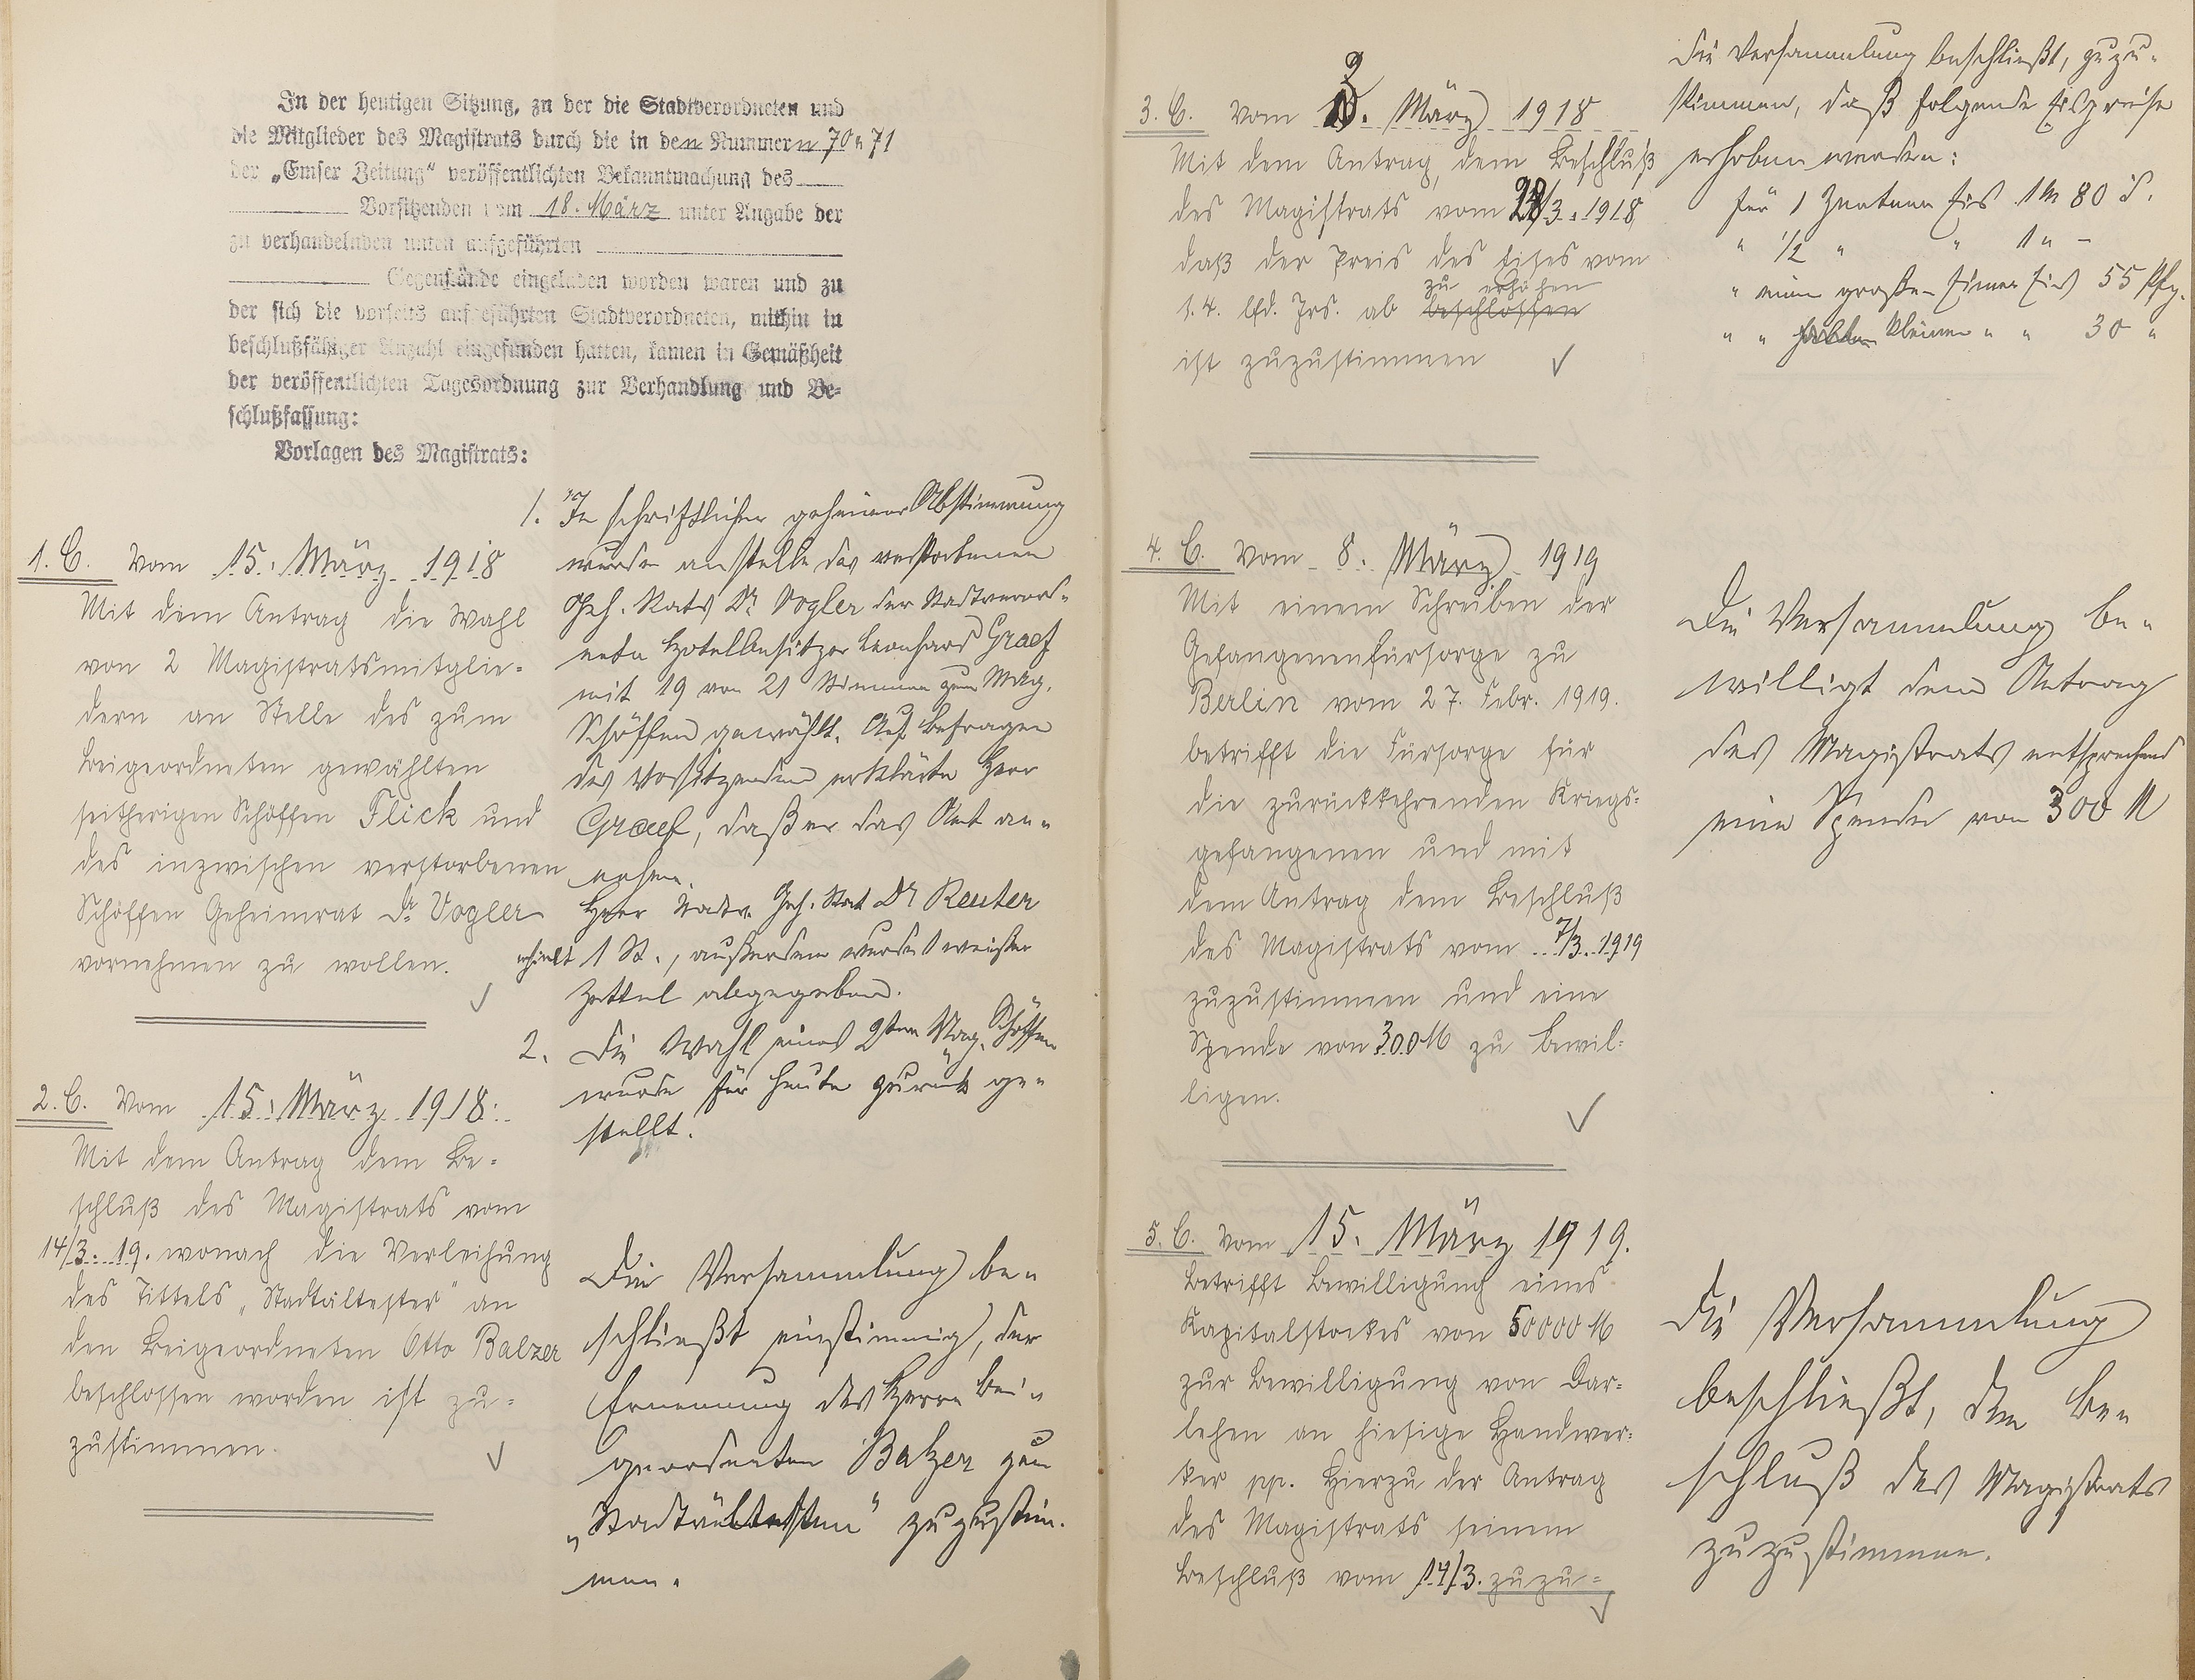 In der heutigen Sitzung, zu der die Stadtverordneten und
die Mitglieder des Magistrats durch die in den Nummern 70 u 71
der „Emser Zeitung“ veröffentlichten Bekanntmachung des
Vorsitzenden vom 18. März unter Angabe der
zu verhandelnden unten aufgeführten
Gegenstände eingeladen worden waren und zu
der sich die vorseits aufgeführten Stadtverordneten, mithin in
beschlußfähiger Anzahl eingefunden hatten, kamen in Gemäßheit
der veröffentlichten Tagesordnung zur Verhandlung und Be-
schlußfassung:
Vorlagen des Magistrats:
1. C. Vom 15. März 1918
Mit dem Antrag die Wahl
von 2 Magistratsmitglie-
dern an Stelle des zum
Beigeordneten gewählten
seitherigen Schöffen Flick und
des inzwischen verstorbenen
Schöffen Geheimrat Dr Vogler
vornehmen zu wollen.
1. In schriftlicher geheimer Abstimmung
wurde anstelle des verstorbenen
Geh. Rats Dr Vogler der Stadtverord-
nete Hotelbesitzer Leonhard Graef
mit 19 von 21 Stimmen zum Mag.
Schöffen gewählt. Auf Befragen
des Vorsitzenden erklärte Herr
Graef, daß er das Amt an-
nehme.
Herr Stadtv. Geh. Rat Dr Reuter
erhielt 1 St., außerdem wurde 1 weißer
Zettel abgegeben.
2. Die Wahl eines 2ten Mag. Schöffen
wurde für heute zurück ge-
stellt.
2. C. Vom 15. März 1918.
Mit dem Antrag dem Be-
schluß des Magistrats vom
14/3. 19. wonach die Verleihung
des Tittels „Stadtältester“ an
den Beigeordneten Otto Balzer
beschlossen worden ist zu-
zustimmen.
Die Versammlung be-
schließt einstimmig, der
Ernennung des Herrn Bei-
geordneten Balzer zum
„Stadtältesten“ zuzustim-
men.
3. C. Vom März 1918
Mit dem Antrag, dem Beschluß
des Magistrats vom 28/3. 1918
daß der Preis des Eises vom
1.4. lfd. Jrs. ab beschlossen zu erhöhen
ist zuzustimmen
Die Versammlung beschließt, zuzu-
stimmen, daß folgende Eispreise
erhoben werden:
für 1 Zentner Eis 1 M 80 d.
" 1/2 " " 1 " -
" einen großen Eimer Eis 55 Pfg.
" " halben kleinen " " 30 "
4. C. Vom 8. März 1919
Mit einem Schreiben der
Gefangenenfürsorge zu
Berlin vom 27. Febr. 1919.
betrifft die Fürsorge für
die zurückkehrenden Kriegs-
gefangenen und mit
dem Antrag dem Beschluß
des Magistrats vom 7/3. 1919
zuzustimmen und eine
Spende von 300 M zu bewil-
ligen.
Die Versammlung be-
willigt dem Antrag
des Magistrats entsprechend
eine Spende von 300 M
5. C. Vom 15. März 1919.
Betrifft Bewilligung eines
Kapitalstockes von 50000 M
zur Bewilligung von Dar-
lehen an hiesige Handwer-
ker pp. Hierzu der Antrag
des Magistrats seinem
Beschluß vom 14/3. zuzu-
Die Versammlung
beschließt, dem Be-
schluß des Magistrats
zuzustimmen.